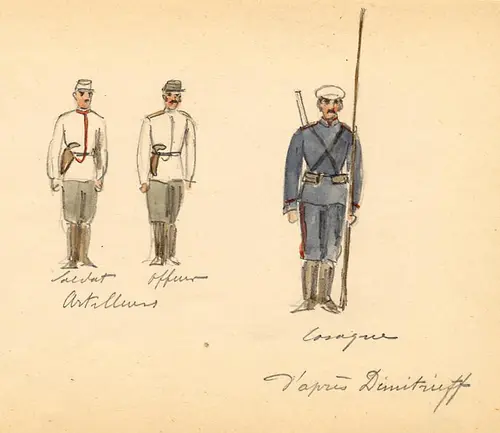 Soldat Officier
Artilleurs
Cosaque
D'après Dimitrieff